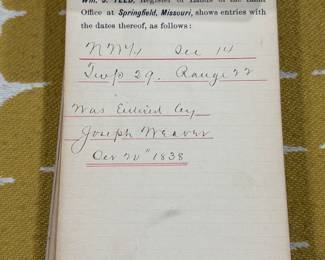 Wm. J. TEED, Register of Lands of the Land
Office at Springfield, Missouri, shows entries with
the dates thereof, as follows:
Sec 14
Twp 29. Range 22
Was Entired by
Joseph Weaver
1838